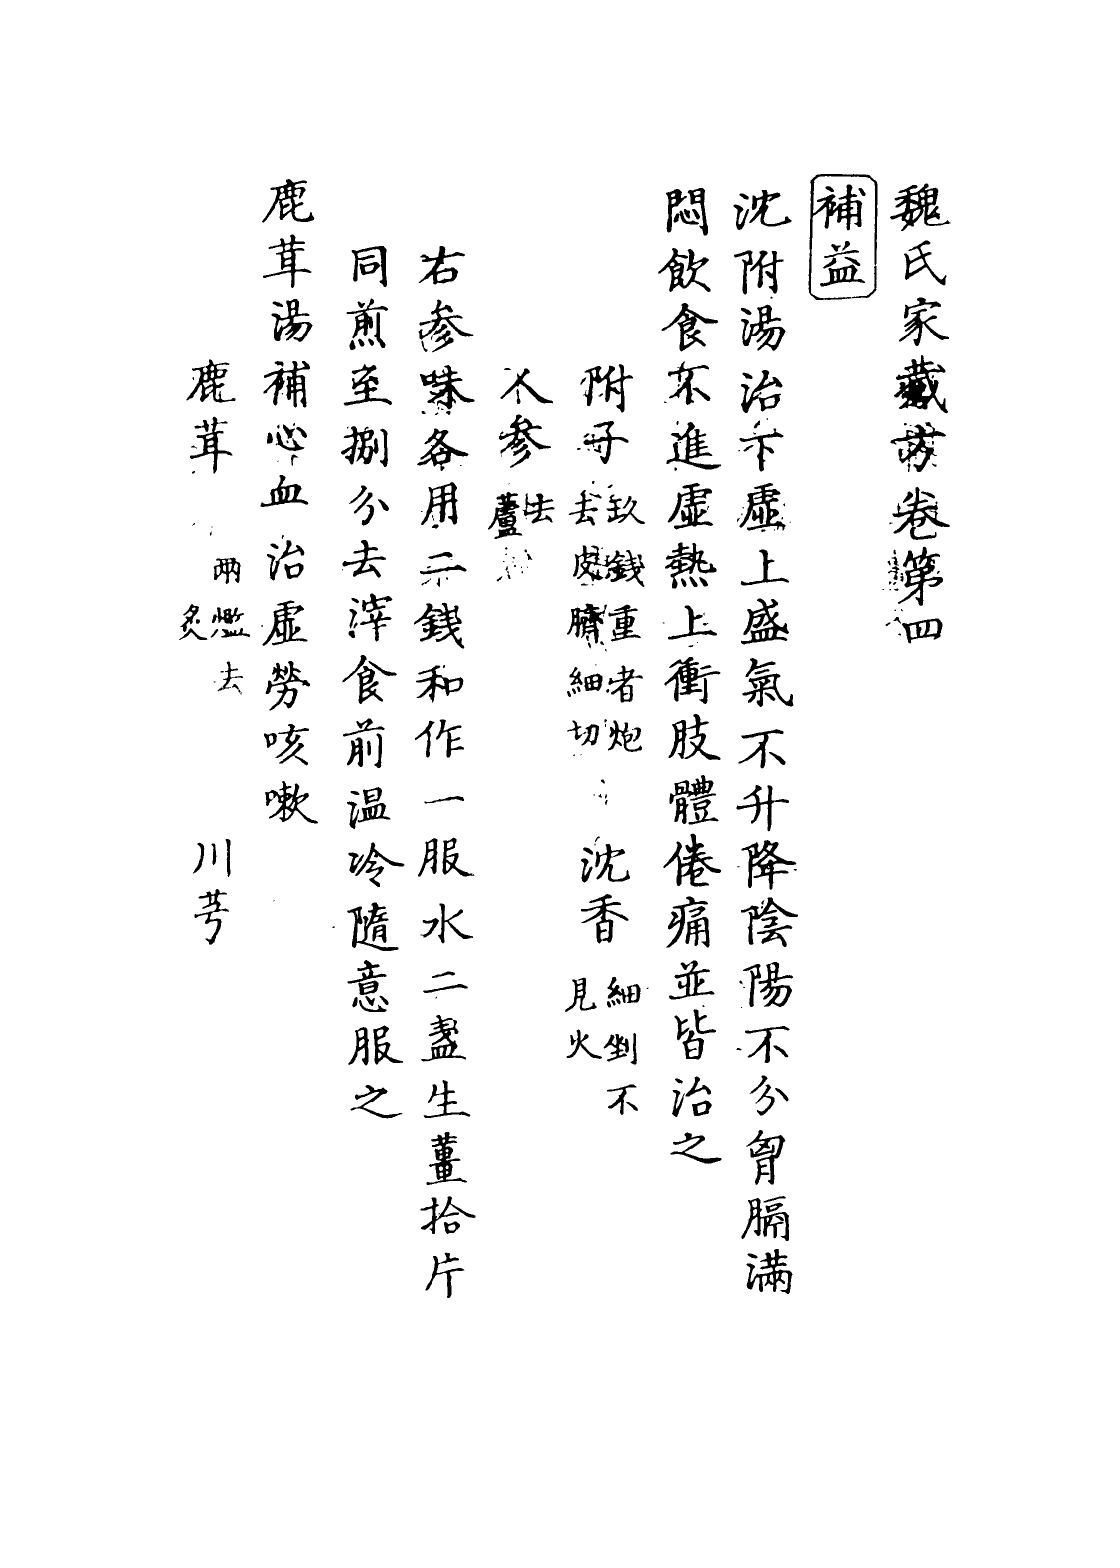 魏氏家藏方卷第四
補益
沈附湯治下虛上盛氣不升降陰陽不分胷膈滿
悶飲食不進虛熱上衝肢體倦痛並皆治之
附子玖錢重者炮去皮臍細切 沈香細剉不見火
人參去蘆
右参味各用二錢和作一服水二盞生薑拾片
同煎至捌分去滓食前温冷隨意服之
鹿茸湯補心血治虛勞咳嗽
鹿茸 兩 去炙 川芎